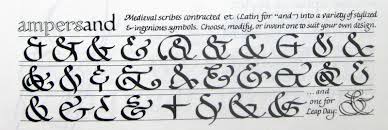 ampersand
Medieval scribes contracted et (Latin for "and") into a variety of stylized
& ingenious symbols. Choose, modify, or invent one to suit your own design.
& & & & & & & & & & &
& & & & & & & & & & ... and
& & & & + & & & & & one for
Leap Day: &